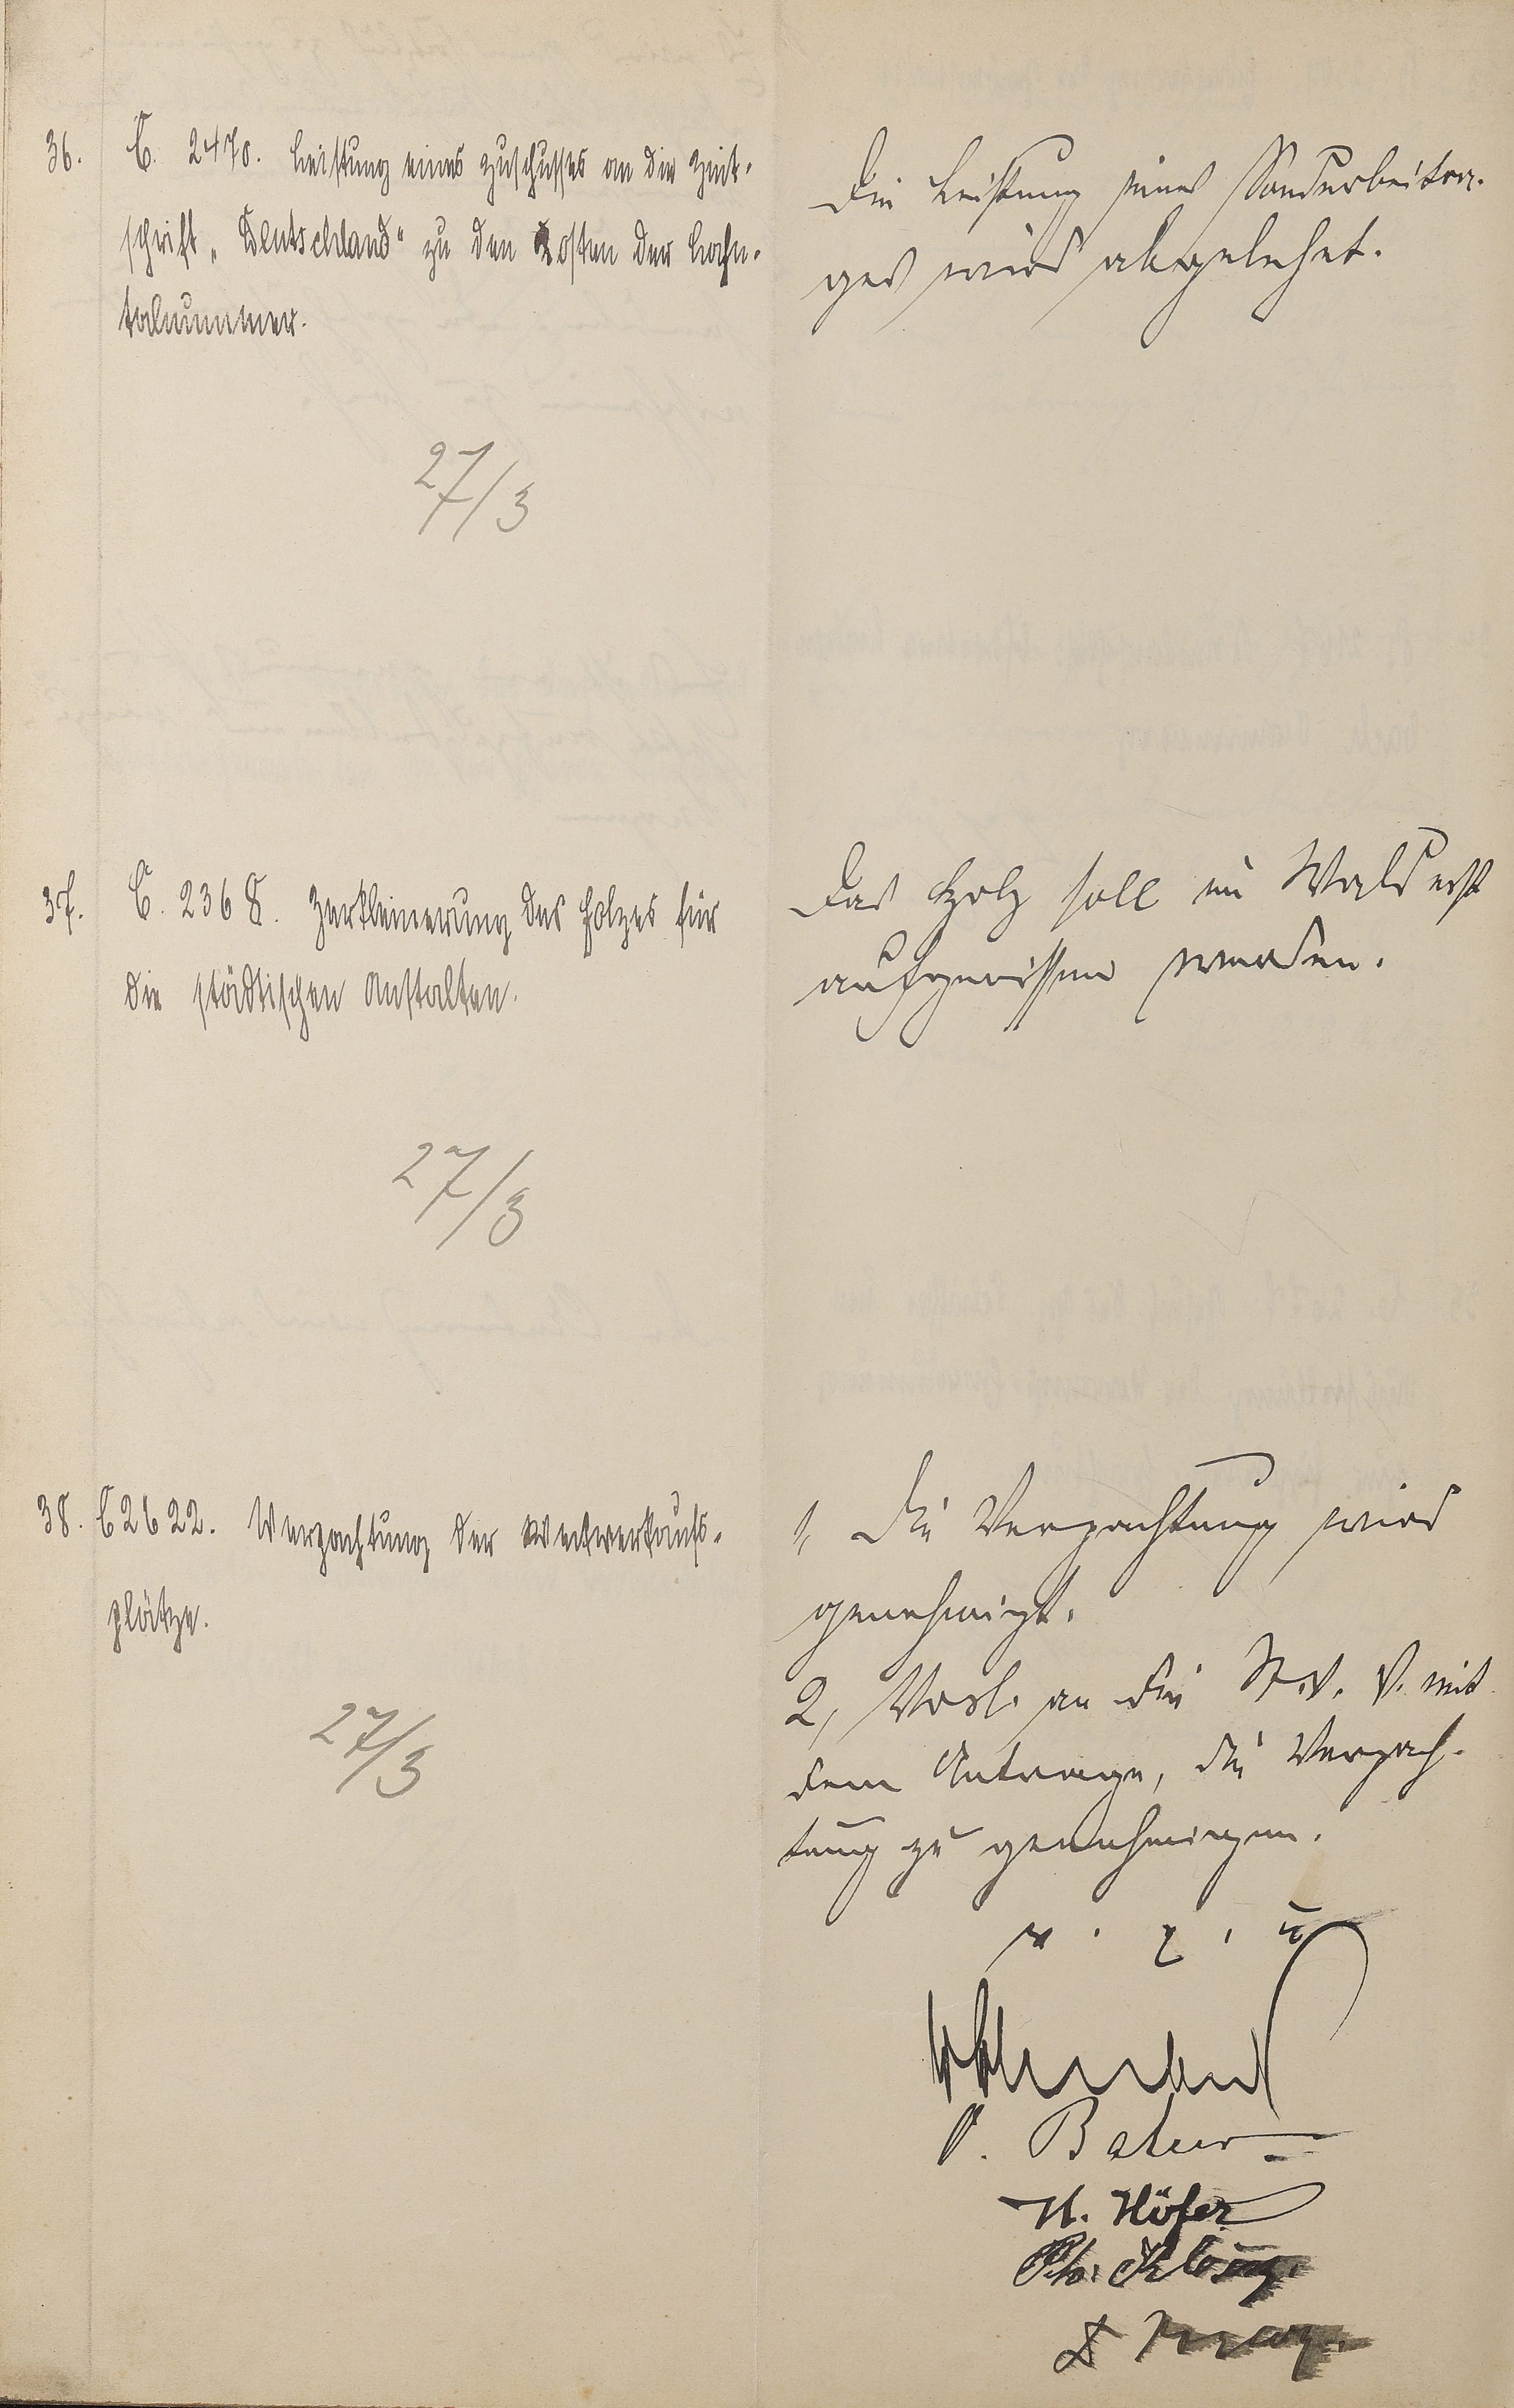 36. C. 2470. Leistung eines Zuschusses an die Zeit-
schrift „Deutschland“ zu den Kosten der Lahn-
talnummer.
Die Leistung eines Sonderbeitra-
ges wird abgelehnt.
27/3
37. C. 2368. Zerkleinerung des Holzes für
die städtischen Anstalten.
Das Holz soll im Wald erst
aufgerissen werden.
27/3
38. C 2622. Verpachtung der
plätze.
1, Die Verpachtung wird
genehmigt.
2, Vorl. an die St. V. V. mit
dem Antrage, die Verpach-
tung zu genehmigen.
27/3
v. g. u.
H. Höfer
Ph.